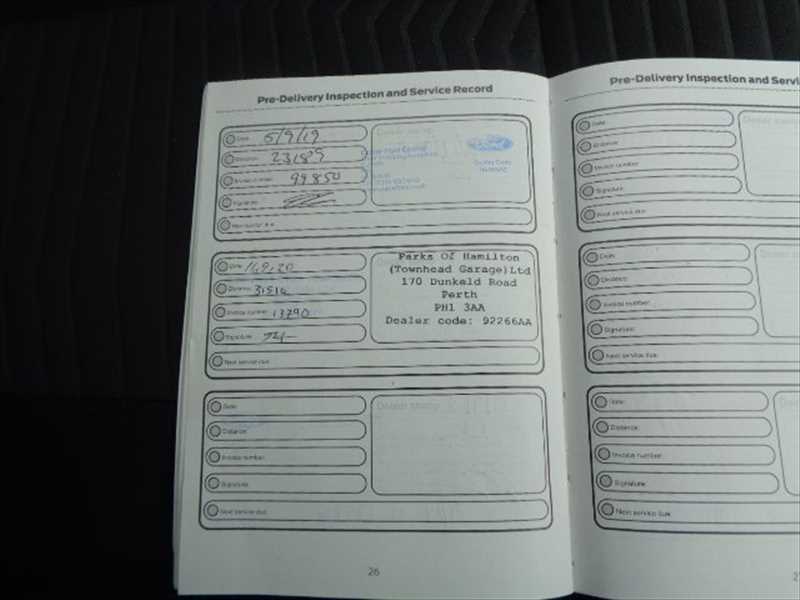 Pre-Delivery Inspection and Service Record
Date 5/9/19
Distance 23189
Invoice number 99850
Signature
Next service due
Dealer stamp
Ford
Date
Distance 31514
Invoice number 13790
Signature
Next service due
Parks Of Hamilton
(Townhead Garage)Ltd
170 Dunkeld Road
Perth
PH1 3AA
Dealer code: 92266AA
Date
Distance
Invoice number
Signature
Next service due
Dealer stamp
26
Pre-Delivery Inspection and Servi
Date
Distance
Invoice number
Signature
Next service due
Dealer stamp
Date
Distance
Invoice number
Signature
Next service due
Date
Distance
Invoice number
Signature
Next service due